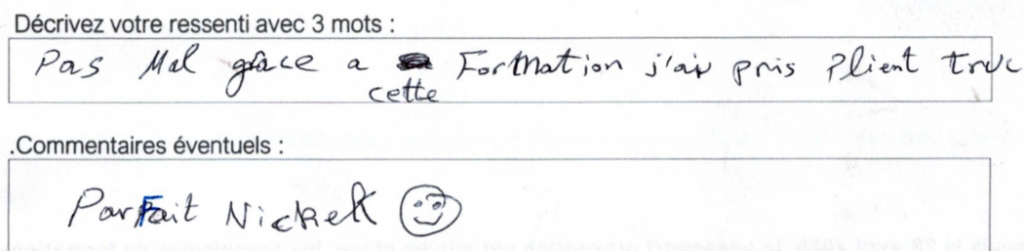 Décrivez votre ressenti avec 3 mots :
Pas Mal grâce a cette Formation j'ai pris Plient truc
.Commentaires éventuels :
Parfait Nickel